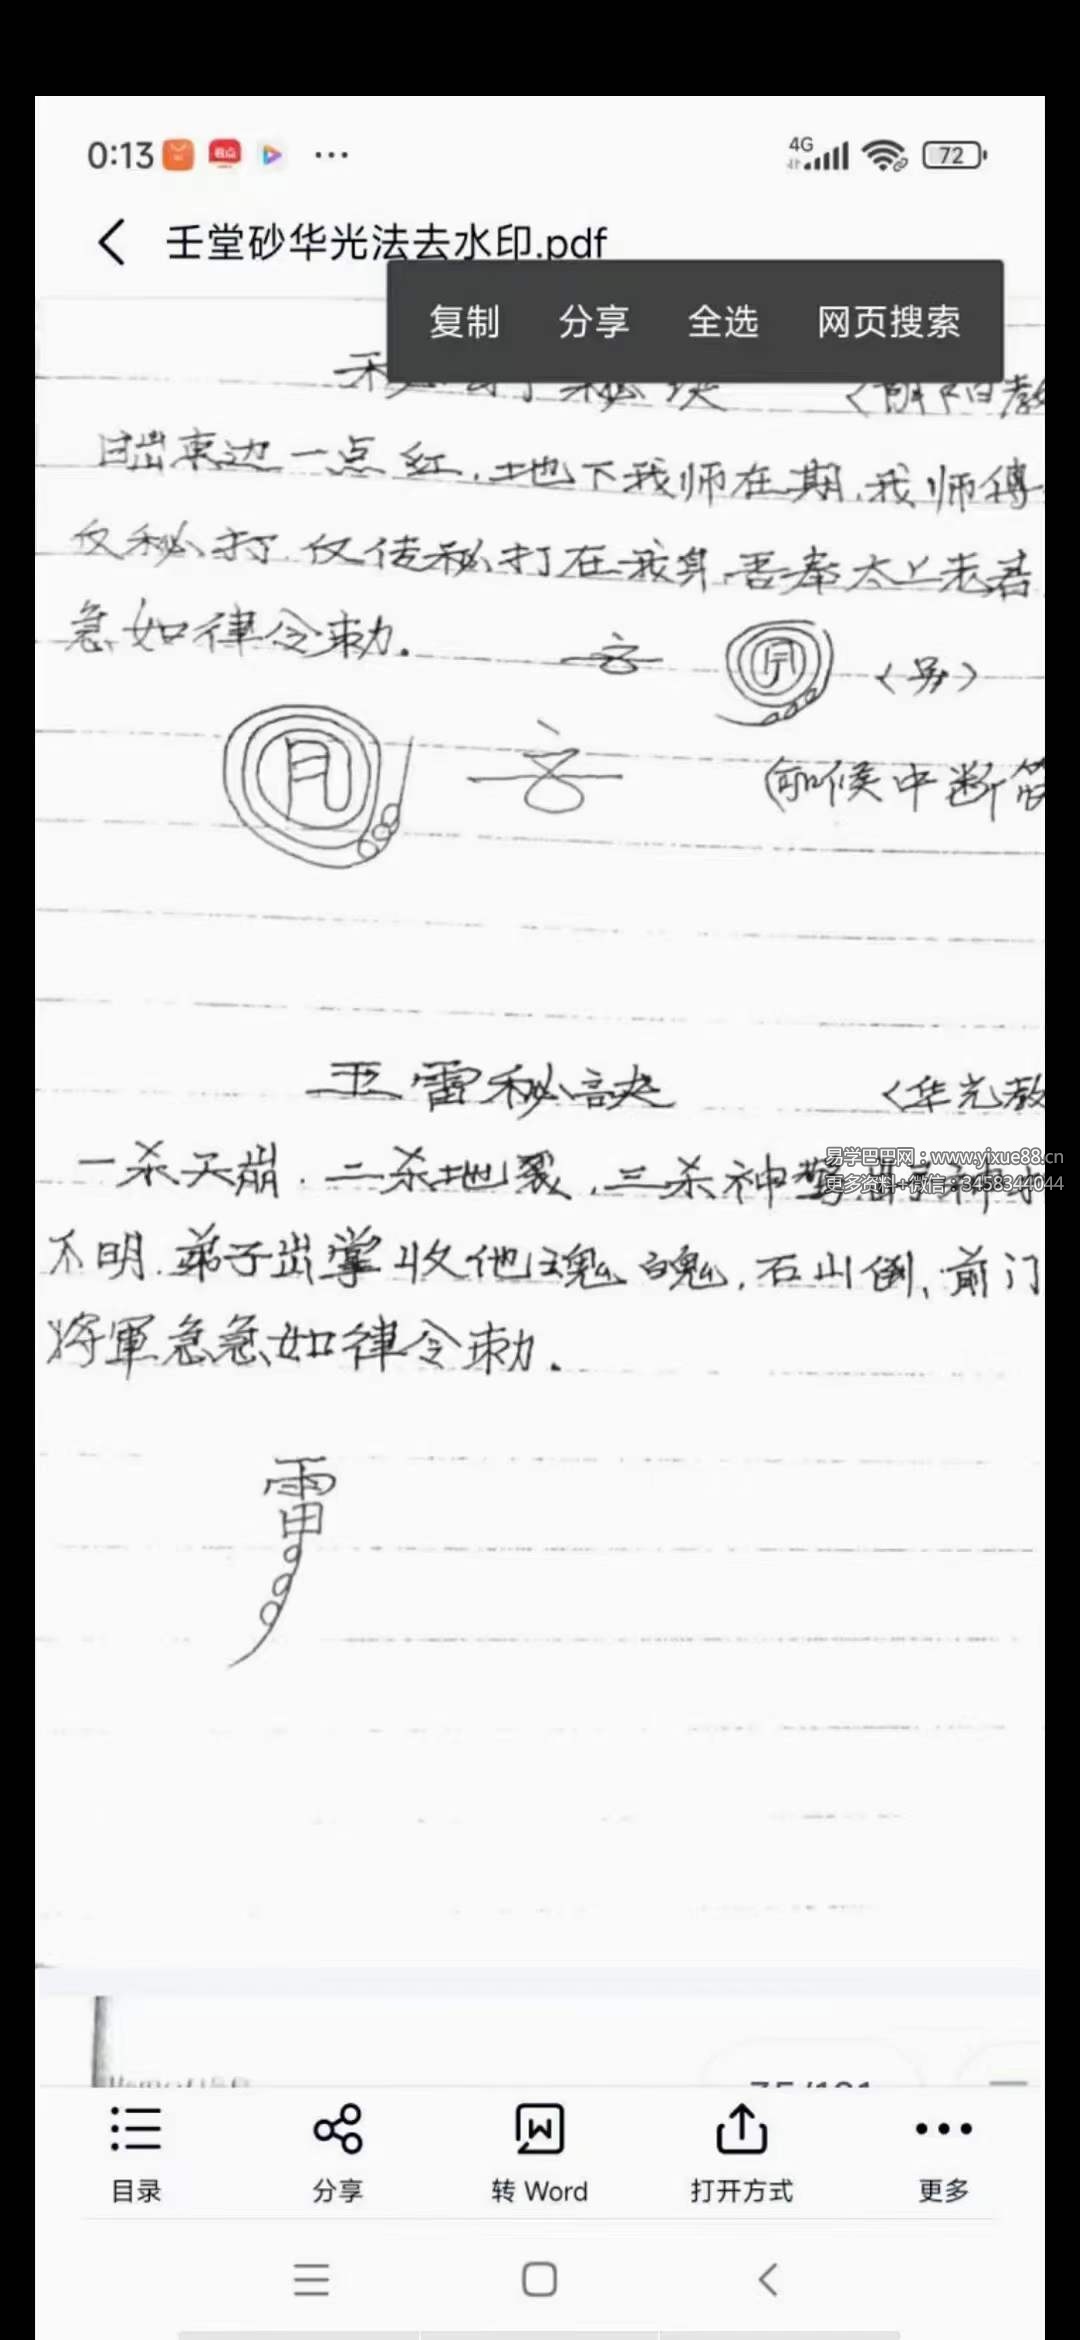 0:13
4G
72
壬堂砂华光法去水印.pdf
复制 分享 全选 网页搜索
秘诀 <阴阳教
日出东边一点红,土地下我师在期,我师傅
仅秘打,仅传秘打在我身,吾奉太上老君
急如律令勅.
<另>
中断
五雷秘訣 <华光教
一杀天崩,二杀地裂,三杀神
易学巴巴网:www.yixue88.cn
更多资料+微信:3458344044
不明,弟子出掌收他魂魄,石山倒,前门
将軍急急如律令勅.
雷
目录 分享 转 Word 打开方式 更多